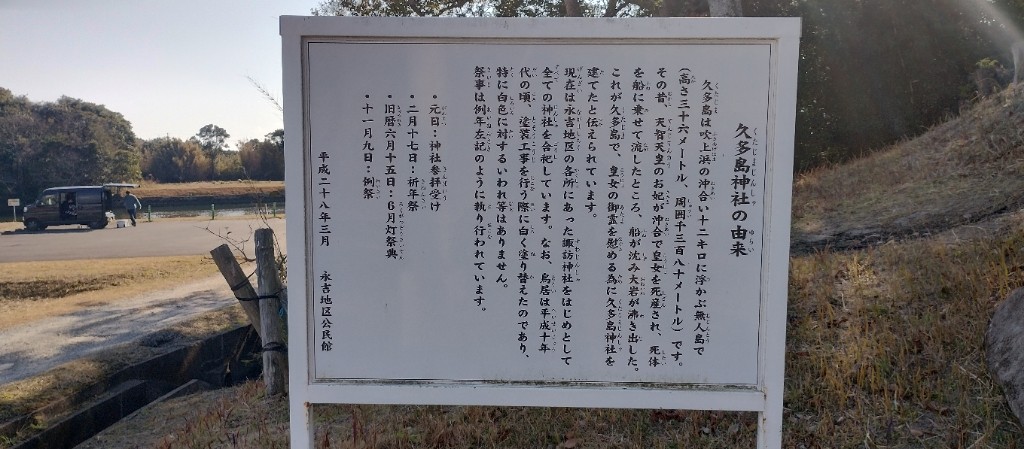 久多島神社の由来
久多島は吹上浜の沖合い十二キロに浮かぶ無人島で
（高さ三十六メートル、周囲千三百八十メートル）です。
その昔、天智天皇のお妃が沖合で皇女を死産され、死体
を船に乗せて流したところ、船が沈み大岩が沸き出した。
これが久多島で、皇女の御霊を慰める為に久多島神社を
建てたと伝えられています。
現在は永吉地区の各所にあった諏訪神社をはじめとして
全ての神社を合祀しています。なお、鳥居は平成十年
代の頃、塗装工事を行う際に白く塗り替えたのであり、
特に白色に対するいわれ等はありません。
祭事は例年左記のように執り行われています。
・元旦：神社参拝受け
・二月十七日：祈年祭
・旧暦六月十五日：６月灯祭典
・十一月九日：例祭
平成二十八年三月　永吉地区公民館